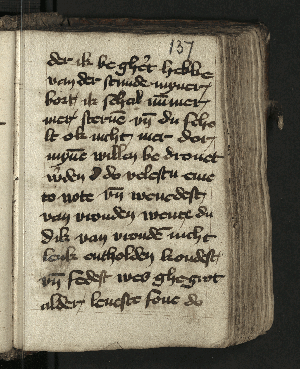 137
der ik be ghert hebbe
van der stunde myner
bort ik schal nummer
mer sterue vn̄ du scho
lt ok nicht mer dor
myne willen be drouet
w̄den do velestu eme
to vote vn̄ wenedest
van vrouden wente du
dik van vroude nicht
lenk entholden kondest
vn̄ sedest wes ghegrot
alder leueste sone do